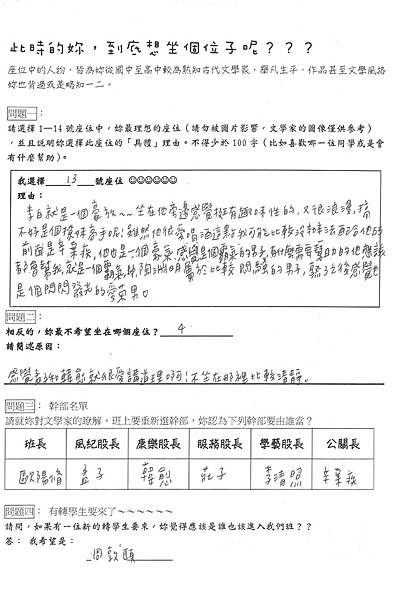 此時的妳，到底想坐個位子呢？？？
座位中的人物，皆為妳從國中至高中較為熟知古代文學家，舉凡生平、作品甚至文學風格
妳也背過或是略知一二。
問題一：
請選擇 1—14 號座位中，妳最理想的座位（請勿被圖片影響，文學家的圖像僅供參考）
，並且說明妳選擇此座位的「具體」理由。不得少於 100 字（比如喜歡哪一位同學或是會
有什麼幫助）。
我選擇 13 號座位 ☺☺☺☺☺☺
理由：
李白就是一個豪放~~坐在他旁邊感覺挺有趣味性的，又很浪漫，搞
不好是個撩妹高手呢！雖然他很愛喝酒這點我可能比較沒辦法配合他的
前面是辛棄疾，他也是一個豪氣感覺是個霸氣的男子，有什麼需要幫助的他應該
都會幫我，就是一個霸氣，陶淵明屬於比較悶騷的男子，熟了之後感覺也
是個閃閃發光的優質男。
問題二：
相反的，妳最不希望坐在哪個座位？ 4
請簡述原因：
感覺孟子和韓愈就很愛講道理啊！不坐在那裡比較清靜。
問題三： 幹部名單
請就妳對文學家的瞭解，班上要重新選幹部，妳認為下列幹部要由誰當？
班長 風紀股長 康樂股長 服務股長 學藝股長 公關長
歐陽脩 孟子 韓愈 莊子 李清照 辛棄疾
問題四： 有轉學生要來了~~~~~~
請問，如果有一位新的轉學生要來，妳覺得應該是誰也該進入我們班？？
答： 我希望是： 周敦頤